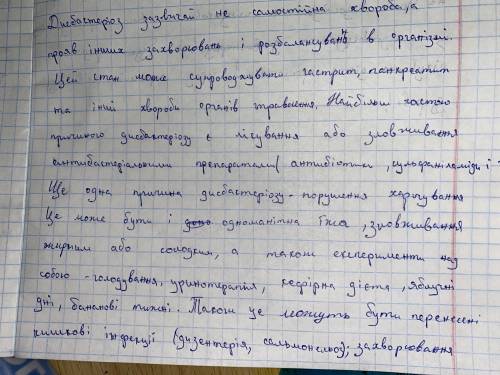 Дисбактеріоз зазвичай не самостійна хвороба, а
прояв інших захворювань і розбалансувань в організмі.
Цей стан може супроводжувати гастрит, панкреатит
та інші хвороби органів травлення. Найбільш частою
причиною дисбактеріозу є лікування або зловживання
антибактеріальними препаратами (антибіотики, сульфаніламіди і
Ще одна причина дисбактеріозу - порушення харчування
Це може бути і одноманітна їжа, зловживання
жирним або солодким, а також експерименти над
собою - голодування, уринотерапія, кефірна дієта, яблучні
дні, бананові тижні. Також це можуть бути перенесені
кишкові інфекції (дизентерія, сальмонельоз); захворювання